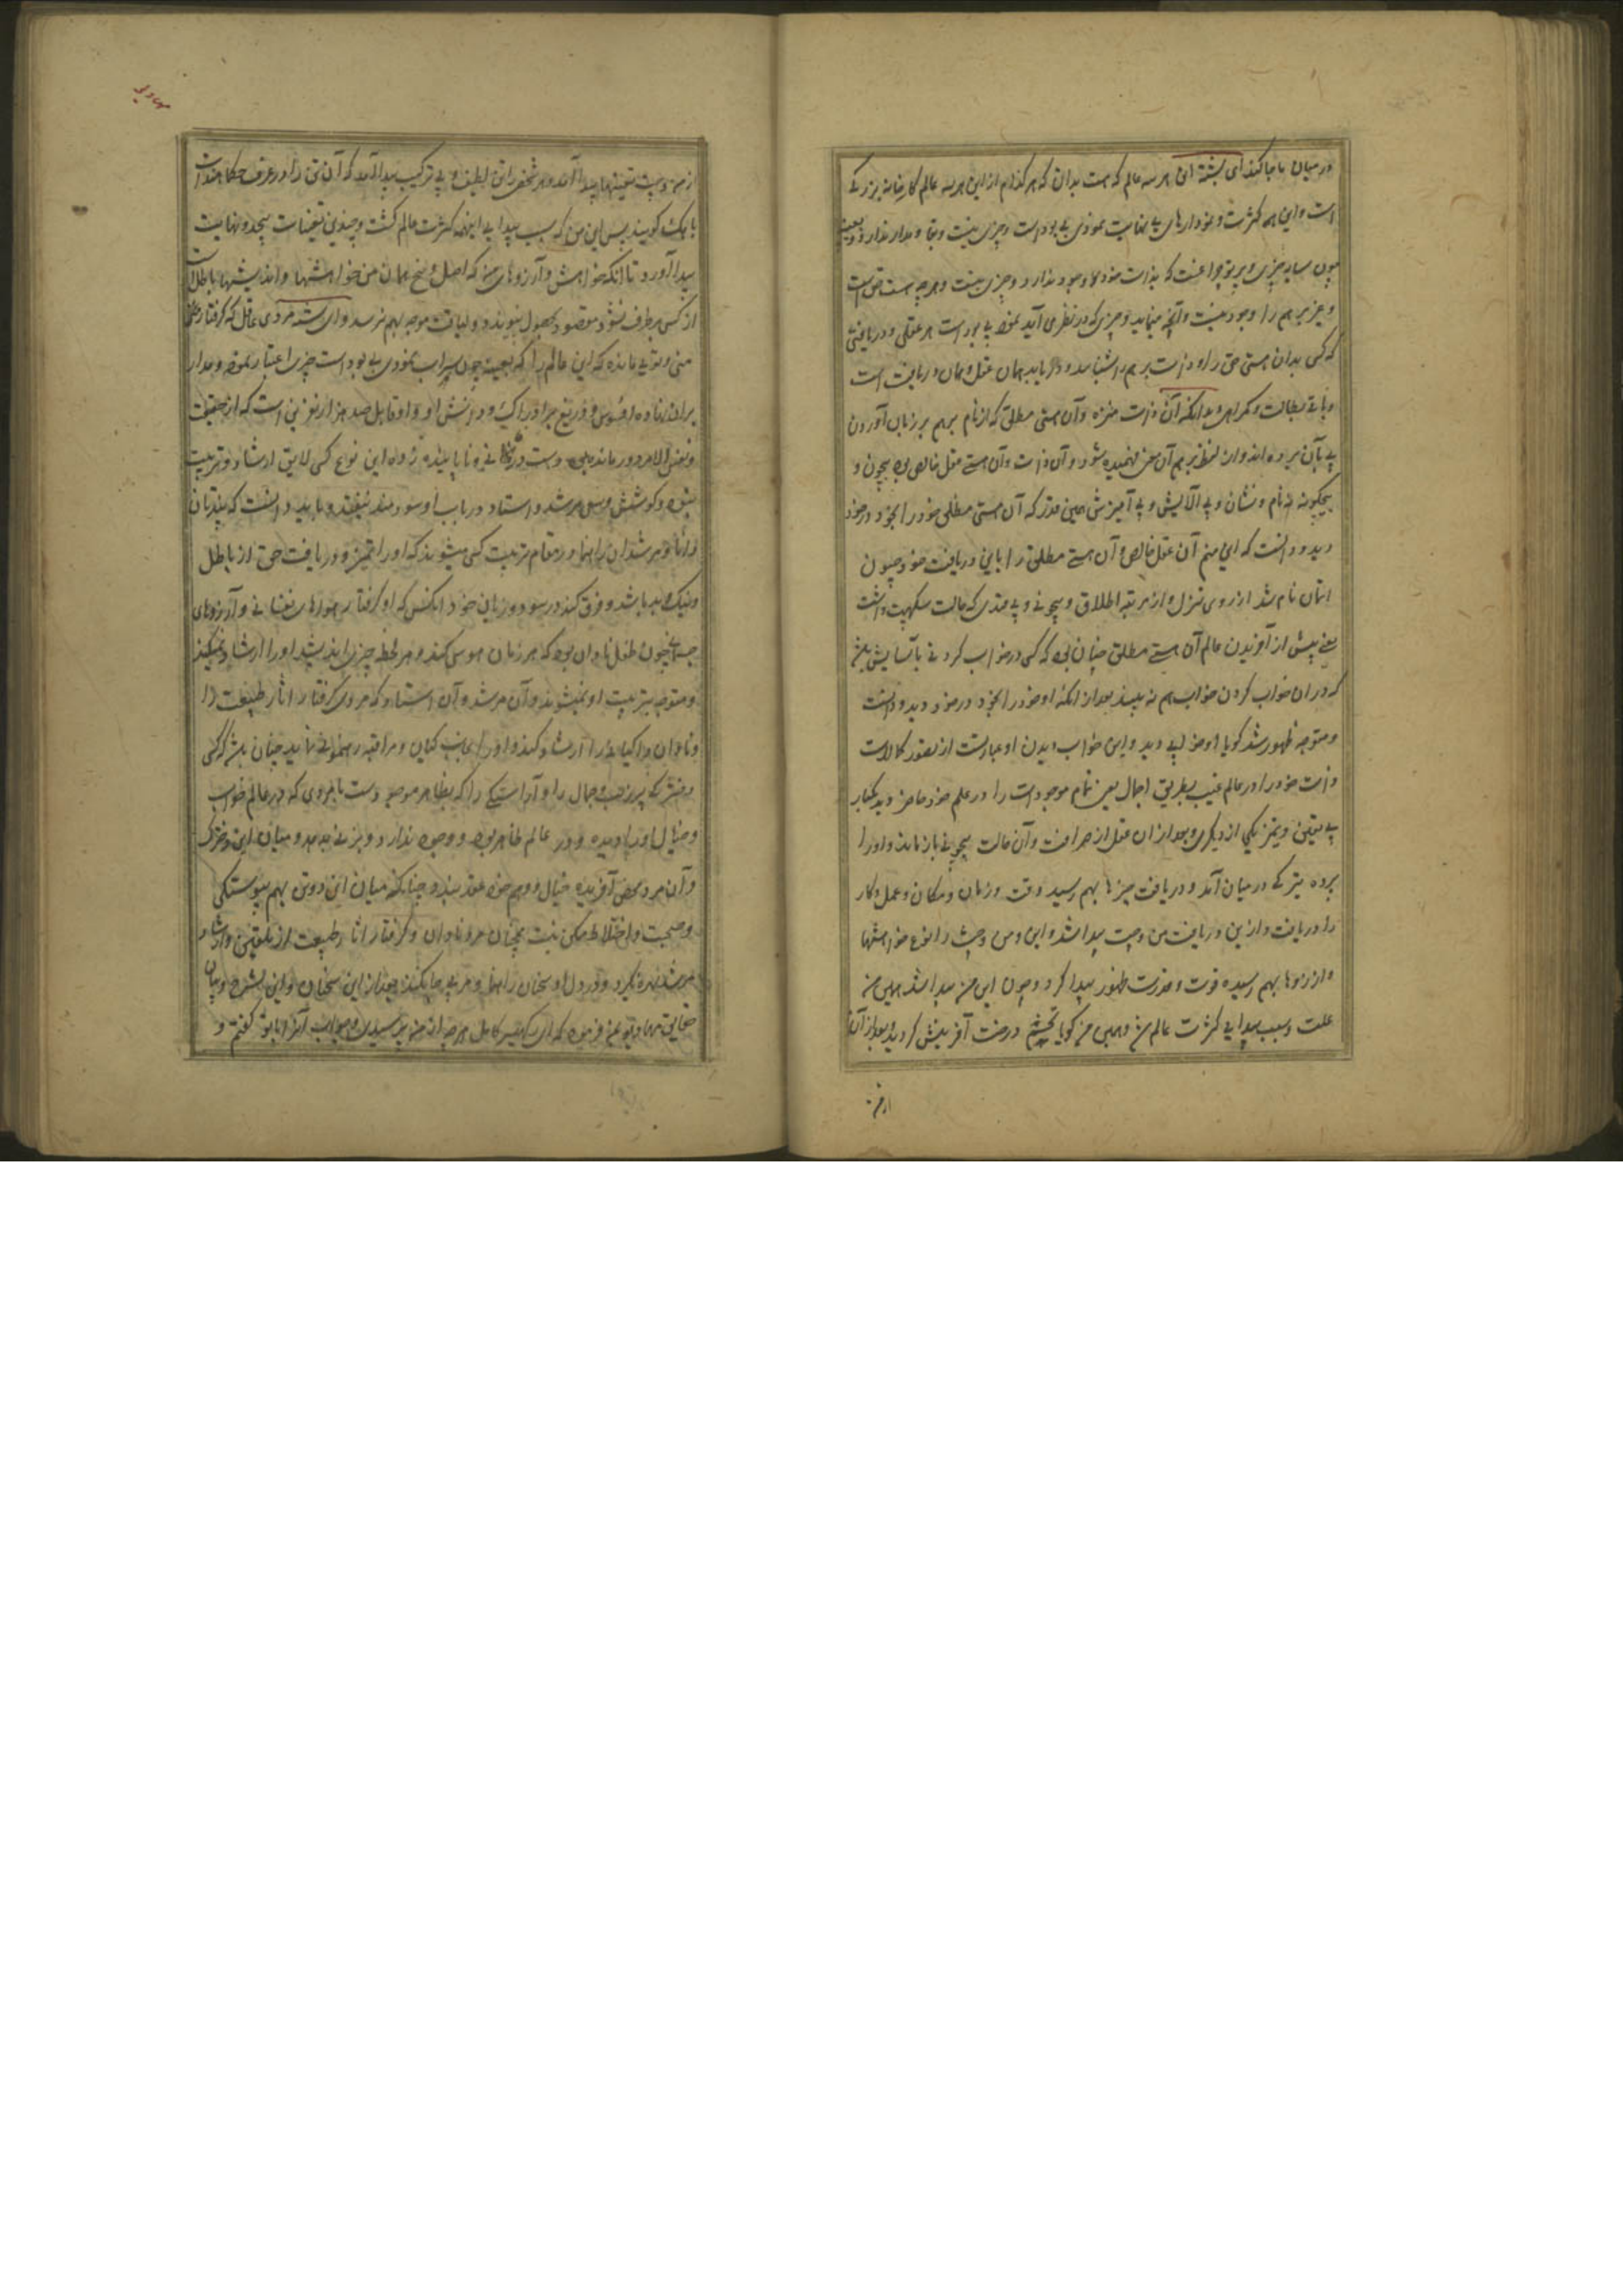 در میان ما جا کند ای بشسته این هر سه عالم که هست بدان که هر کدام از این هر سه عالم کارخانه بزرگی
است و این همه کثرت و نمودارهای بی نهایت نمودی بی بود است و چیزی نیست و بقا و مدار ندارد و بعینه
چون سایه چیزی و پرتو چراغست که بذات خود وجود ندارد و چیزی نیست و هر چه هست حق است
و غیر برهم را وجود نیست و آنچه مینماید و چیزی که در نظر می آید نمود بی بود است هر عقلی و دریافتی
که کسی بدان هستی حق را و ذات برهم را شناسد و دریابد همان عقل و همان دریافت است
و باقی بطالت و گمراهی و بدانکه آن ذات منزه و آن هستی مطلق که از نام برهم بر زبان آوردن
پی بآن برده اند و از لفظ برهم آن معنی فهمیده شود و آن ذات و آن هستی عقل خالص بود بیچون و
بیچگونه نه نام و نشان و بی آلایش و بی آمیزش همین قدر که آن هستی مطلق خود را بخود در خود
دید و دانست که این منم آن عقل خالص و آن هستی مطلق را باین دریافت خود جیون
اتمان نام شد از روی تنزل و از مرتبه اطلاق و بیچونی و بی قیدی که حالت سکهپت داشت
یعنی پیش از آفریدن عالم آن هستی مطلق چنان بود که کسی در خواب کردنی بآسایش باشد
که در ان خواب کردن خواب هم نه بیند بعد از انکه او خود را بخود در خود دید و دانست
و متوجه ظهور شد گویا او خوابی دید و این خواب دیدن او عبارتست از تصور کمالات
ذات خود را در عالم غیب بطریق اجمال یعنی تمام موجودات را در علم خود حاضر دید یکبار
بی تعین و تمیز یکی از دیگری و بعد از ان عقل از صرافت و آن حالت بیچونی باز ماند و او را
پرده تیرگی در میان آمد و دریافت چیزها بهم رسید وقت و زمان و مکان و عمل و کار
را دریافت و از این دریافت من و چت پیدا شد و این و من و چت را انواع خواهشها
و آرزوها بهم رسیده قوت و قدرت ظهور پیدا کرد و چون این من پیدا شد همین من
علت و سبب پیدایی کثرت عالم شد و همین من گویا تخم درخت آفرینش گردید و بعد از آن
از من
مهادیو
از من و چت تعینها پیدا آمد و هر شخص را تن لطیف و بی ترکیب پیدا آمد که آن تن را در عرف حکماء هند
گویند پس این من که سبب پیدایی اینهمه کثرت عالم گشت و چندین تعینات بیحد و نهایت
پیدا آورد تا آنکه خواهش و آرزوهای من که اصل و بیخ همان من خواهشها و اندیشهاء باطل است
از کسی برطرف نشود مقصود بحصول نپیوندد و لیاقت موجه بهم نرسد و ای بشسته مردی عاقل که گرفتار
منی و تویی مانده که این عالم را که بعینه چون سراب نمودی بی بود است چیزی اعتبار نموده و مدار
بران نهاده افسوس و دریغ بر ادراک و دانش او و او قابل صد هزار نفرین است که از حقیقت
و نفس الامر دور مانده
کوشش و سعی مرشد و استاد در باب او سودمند نیفتد و باید دانست که پندتان
دانا و مرشدان راهنما در مقام تربیت کسی میشوند که او را تمیز و دریافت حق از باطل
و نیک و بد باشد و فرق کند در سود و زیان خود آنکس که او گرفتار هواهای نفسانی و آرزوهای
چون طفل نادان بود که هر زمان هوس کند و هر لحظه چیزی اندیشد او را ارشاد نمیکنند
و متوجه تربیت او نمیشوند و آن مرشد و آن استاد که مردی گرفتار آثار طبیعت را
و نادان را ارشاد کند و او را بجانب گیان و مراقبه رهنمونی نماید چنان باشد که کسی
دختر که پرزیب و جمال را و آراستگی را که بظاهر موجود است با مردی که در عالم خواب
و خیال او را دیده و در عالم ظاهر بود و وجود ندارد و بزنی بدهد و میان این دختر
و آن مرد محض آفریده خیال و وهم خود عقد بندد و چنانکه میان این دو تن بهم پیوستگی
و صحبت و اختلاط ممکن نیست همچنان مرد نادان و گرفتار آثار طبیعت از تلقین و ارشاد
مرشد بهره نگیرد و در دل او سخنان راهنما و مرشد جا نکند بعد از این سخنان و این شرح و بیان
حقایق مهادیو بمن فرمود که ای رکهیسر کامل هر چه از من پرسیدی و جواب آنرا با تو گفتم و